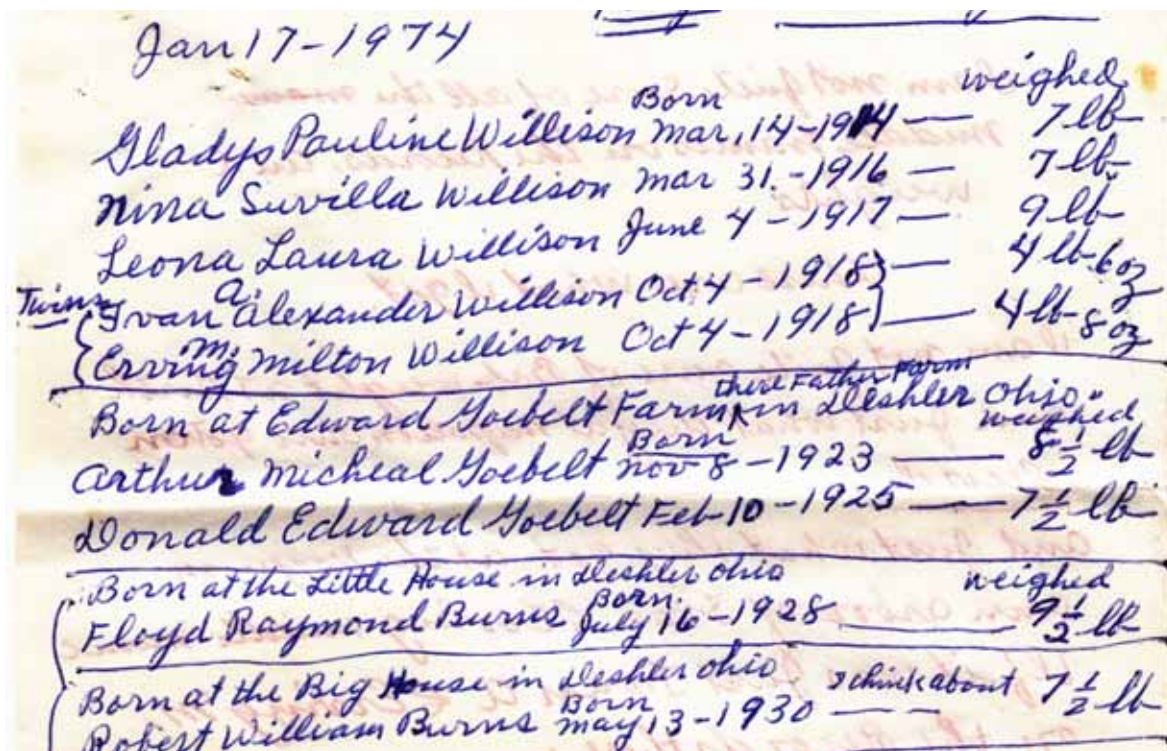 Jan 17-1974
Born weighed
Gladys Pauline Willison Mar, 14-1914 — 7 lb
Nina Survilla Willison Mar 31.-1916 — 7 lb.
Leona Laura Willison June 4-1917 — 9 lb
Twins { Ivan a. Alexander Willison Oct 4-1918 } — 4 lb-6 oz
Erving m. Milton Willison Oct 4-1918 } — 4 lb-8 oz
Born at Edward Goebelt Farm there Father Farm in Deshler Ohio.
Born weighed
Arthur Micheal Goebelt Nov 8-1923 — 8 1/2 lb
Donald Edward Goebelt Feb 10-1925 — 7 1/2 lb
Born at the Little House in Deshler ohio weighed
Floyd Raymond Burns Born. July 16-1928 — 9 1/2 lb
Born at the Big House in Deshler ohio
Robert William Burns Born May 13-1930 — I think about 7 1/2 lb